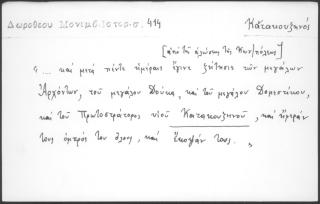 Δωροθέου Μονεμβ. Ιστορ. σ. 414
Κατακουζηνός
[ἀπὸ τὴν ἅλωσιν τῆς Κων/πόλεως]
“... καὶ μετὰ πέντε ἡμέρας ἔγινε ζήτησις τῶν μεγάλων
Ἀρχόντων, τοῦ μεγάλου Δούκα, καὶ τοῦ μεγάλου Δομεστίκου,
καὶ τοῦ Πρωτοστράτορος υἱοῦ Κατακουζηνοῦ, καὶ ηὕραν
τους ὀμπρὸς του ὅλους, καὶ ἔκοψάν τους. „